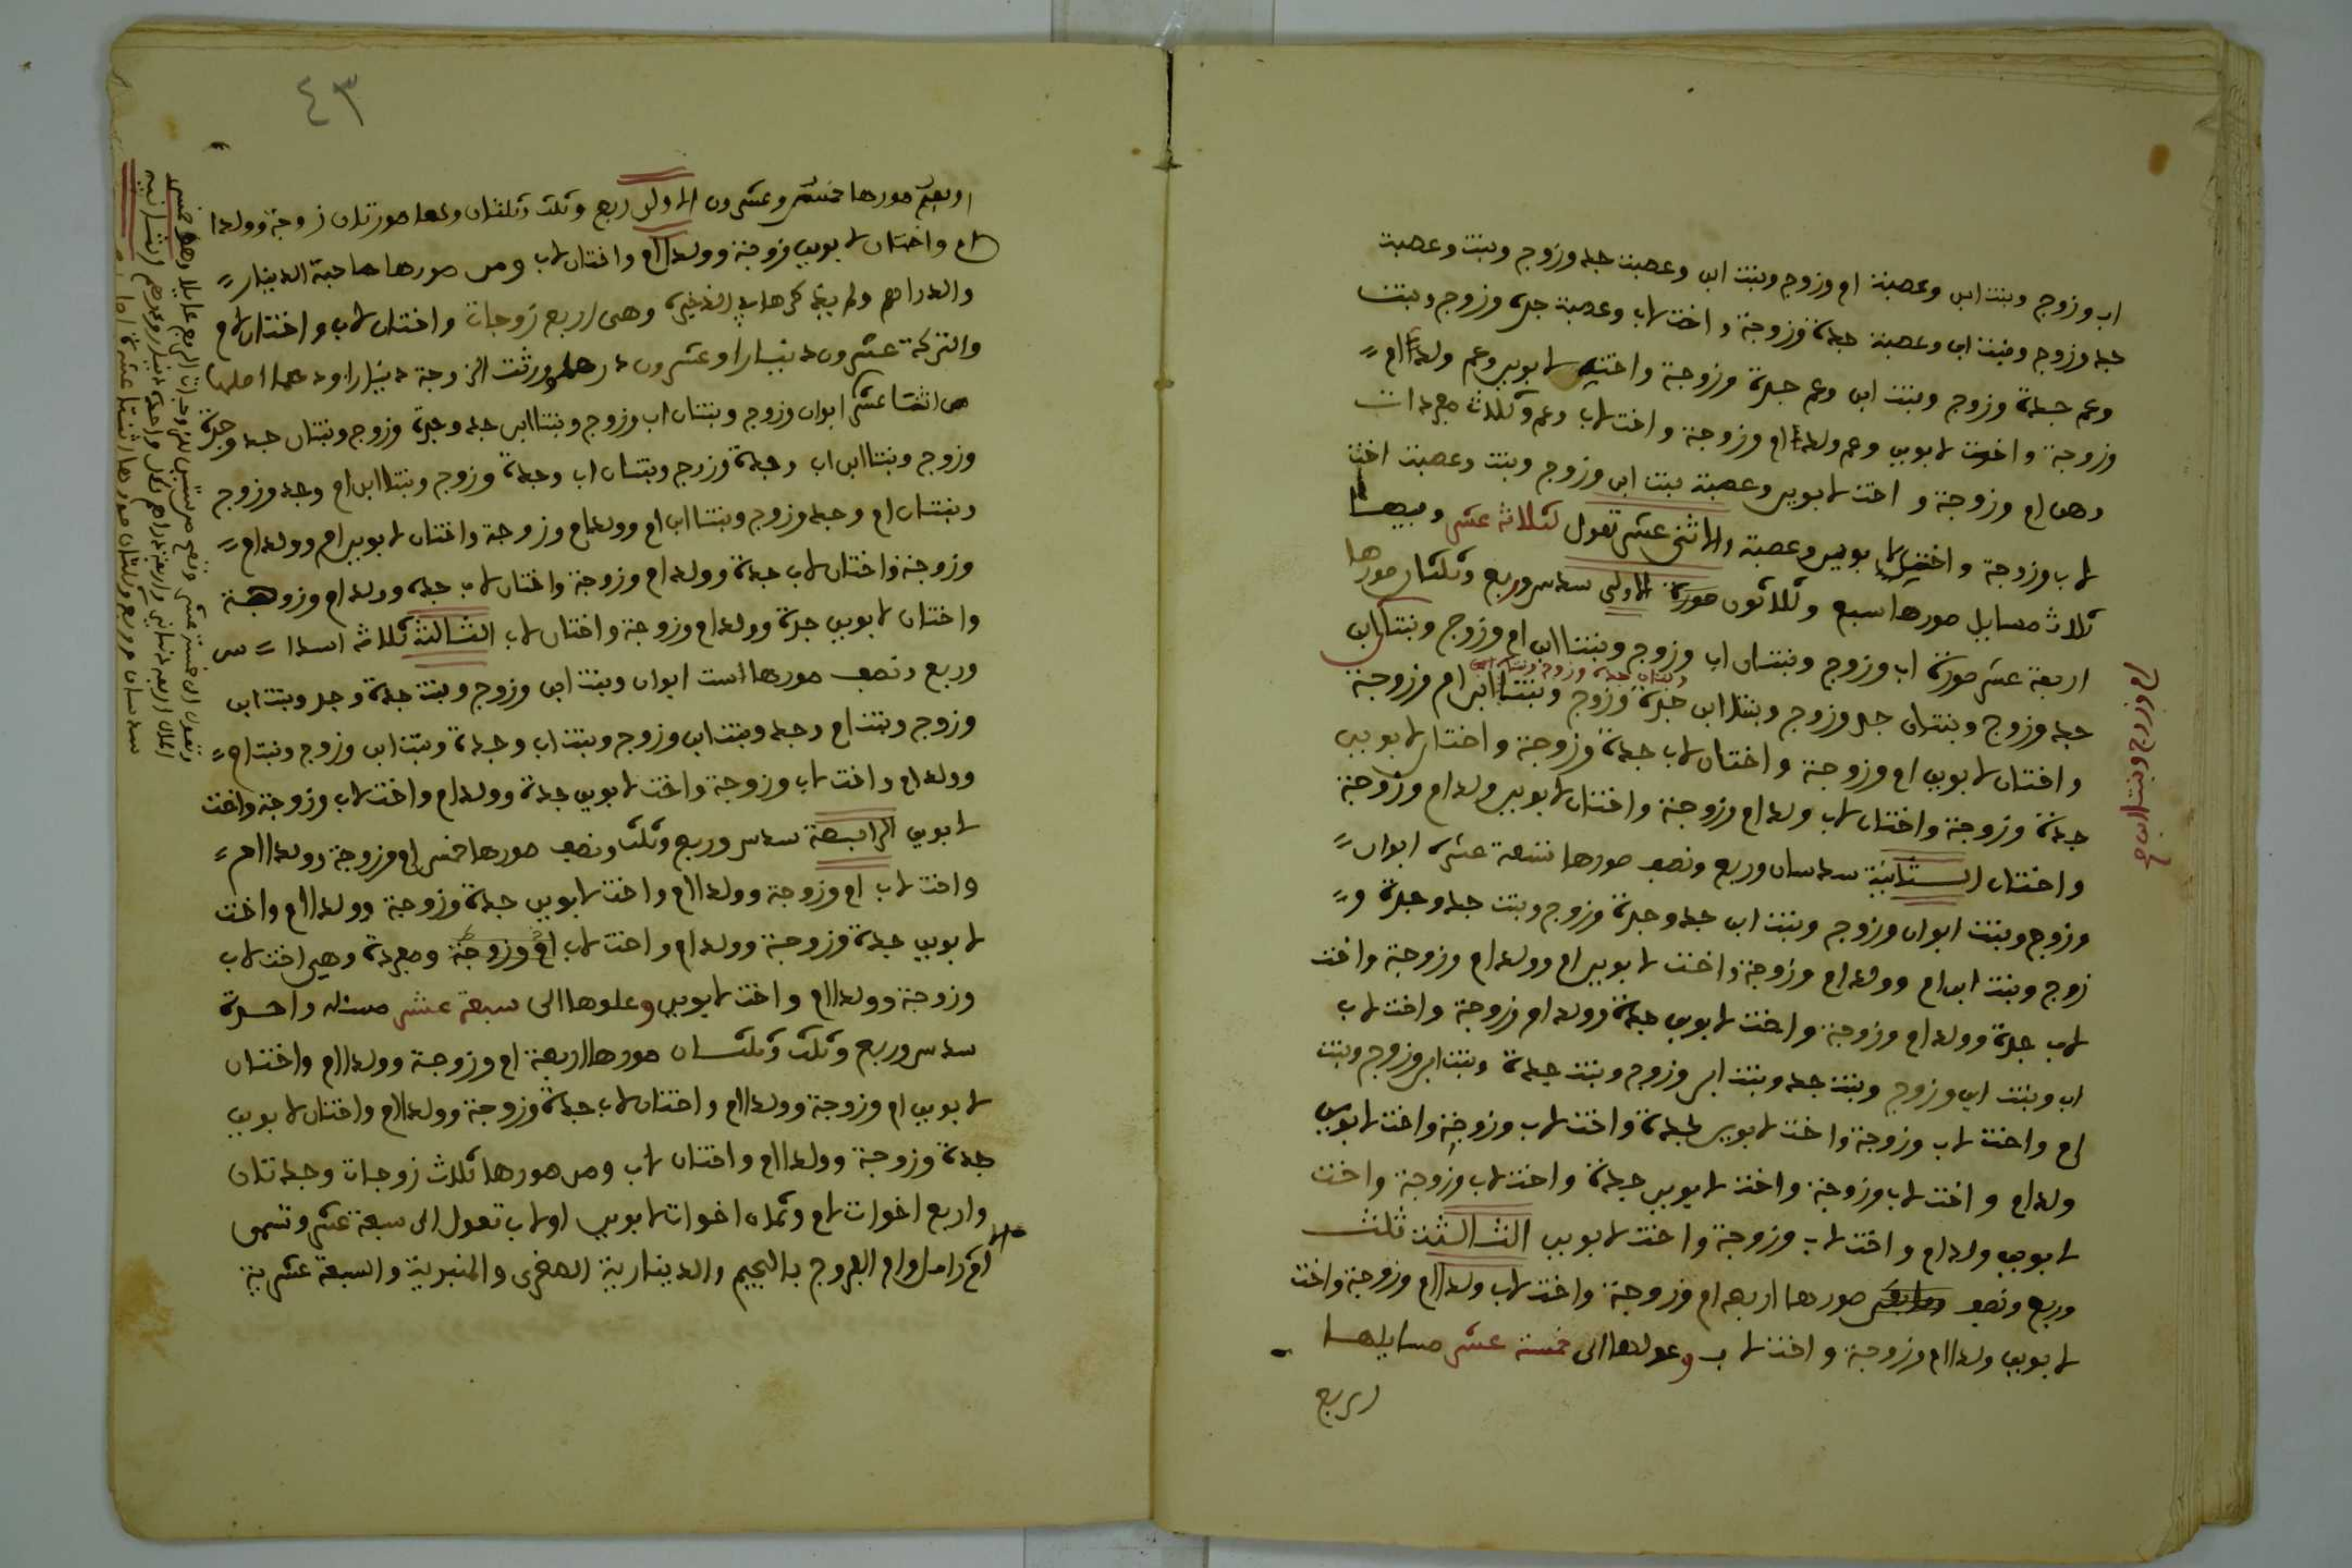 اب وزوج وبنت ابن وعصبة ام وزوج وبنت ابن وعصبة جد وزوج وبنت وعصبة
جد وزوج وبنت ابن وعصبة جدة وزوجة واخت لاب وعصبة جدة وزوج وبنت
وعم جدة وزوج وبنت ابن وعم جدة وزوجة واخت لابوين وعم ولدا ام
وزوجة واخت لابوين وعم ولدا ام وزوجة واخت لاب وعم وثلاث مجردات
وهى ام وزوجة واخت لابوين وعصبة بنت ابن وزوج وبنت وعصبة اخت
لاب وزوجة واختين لابوين وعصبة والاثنى عشر تعول لثلاثة عشر وفيها
ثلاث مسايل صورها سبع وثلاثون صورة الاولى سدس وربع وثلثان صورها
اربعة عشر صورة اب وزوج وبنتان اب وزوج وبنتا ابن ام وزوج وبنتا ابن
جد وزوج وبنتان جد وزوج وبنتا ابن جدة وزوج وبنتا ابن ام وزوجة
واختان لابوين ام وزوجة واختان لاب جدة وزوجة واختان لابوين
جدة وزوجة واختان لاب ولد ام وزوجة واختان لابوين ولد ام وزوجة
واختان الثانية سدسان وربع ونصف صورها تسعة عشر ابوان
وزوج وبنت ابوان وزوج وبنت ابن جد وجدة وزوج وبنت جد وجدة و
زوج وبنت ابن ام وولد ام وزوجة واخت لابوين ام وولد ام وزوجة واخت
لاب جدة وولد ام وزوجة واخت لابوين جدة وولد ام وزوجة واخت لاب
اب وبنت ابن وزوج وبنت جد وبنت ابن وزوج وبنت جدة وبنت ابن وزوج وبنت
ام واخت لاب وزوجة واخت لابوين جدة واخت لاب وزوجة واخت لابوين
ولد ام واخت لاب وزوجة واخت لابوين جدة واخت لاب وزوجة واخت
لابوين ولد ام واخت لاب وزوجة واخت لابوين الثالثة ثلث
وربع ونصف صورها اربعة ام وزوجة واخت لاب ولدا ام وزوجة واخت
لابوين ولدا ام وزوجة واخت لاب وعولها الى خمسة عشر مسايلها
اربع
٤٣
اربع صورها خمس وعشرون الاولى ربع وثلث وثلثان ولها صورتان زوجة وولدا
ام واختان لابوين زوجة وولدا ام واختان لاب ومن صورها صاحبة الدينار
والدراهم وهى اربع زوجات واختان لاب واختان لام
والتركة عشرون دينارا وعشرون درهما ورثت الزوجة دينارا ودرهما اصلها
من اثنا عشر ابوان وزوج وبنتان اب وزوج وبنتا ابن جد وجدة وزوج وبنتان جد وجدة
وزوج وبنتا ابن اب وجدة وزوج وبنتان اب وجدة وزوج وبنتا ابن ام وجد وزوج
وبنتان ام وجد وزوج وبنتا ابن ام وولد ام وزوجة واختان لابوين ام وولد ام
وزوجة واختان لاب جدة وولد ام وزوجة واختان لاب جدة وولد ام وزوجة
واختان لابوين جدة وولد ام وزوجة واختان لاب الثالثة ثلاثة اسداس
وربع ونصف صورها ست ابوان وبنت ابن وزوج وبنت جدة وجد وبنت ابن
وزوج وبنت ام وجد وبنت ابن وزوج وبنت اب وجدة وبنت ابن وزوج وبنت ام
وولد ام واخت لاب وزوجة واخت لابوين جدة وولد ام واخت لاب وزوجة واخت
لابوين الرابعة سدس وربع وثلث ونصف صورها خمس ام وزوجة وولدا ام
واخت لاب ام وزوجة وولدا ام واخت لابوين جدة وزوجة وولدا ام واخت
لابوين جدة وزوجة وولد ام واخت لاب ام وزوجة ومجردة وهى اخت لاب
وزوجة وولدا ام واخت لابوين وعلوها الى سبعة عشر مسئلة واحدة
سدس وربع وثلث وثلثان صورها اربعة ام وزوجة وولدا ام واختان
لابوين ام وزوجة وولدا ام واختان لاب جدة وزوجة وولدا ام واختان لابوين
جدة وزوجة وولدا ام واختان لاب ومن صورها ثلاث زوجات وجدتان
واربع اخوات لام وثمان اخوات لابوين او لاب تعول الى سبعة عشر وتسمى
ام الارامل وام الفروج بالجيم والدينارية الصغرى والمنبرية والسبعة عشرية